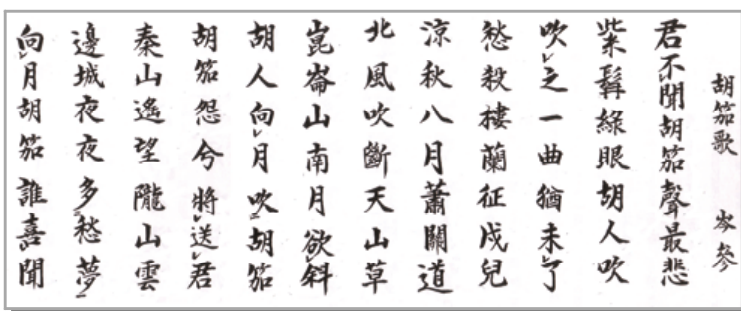 胡笳歌 岑參
君不聞胡笳聲最悲
紫髯綠眼胡人吹
吹之一曲猶未了
愁殺樓蘭征戍兒
涼秋八月蕭關道
北風吹斷天山草
崑崙山南月欲斜
胡人向月吹胡笳
胡笳怨兮將送君
秦山遙望隴山雲
邊城夜夜多愁夢
向月胡笳誰喜聞